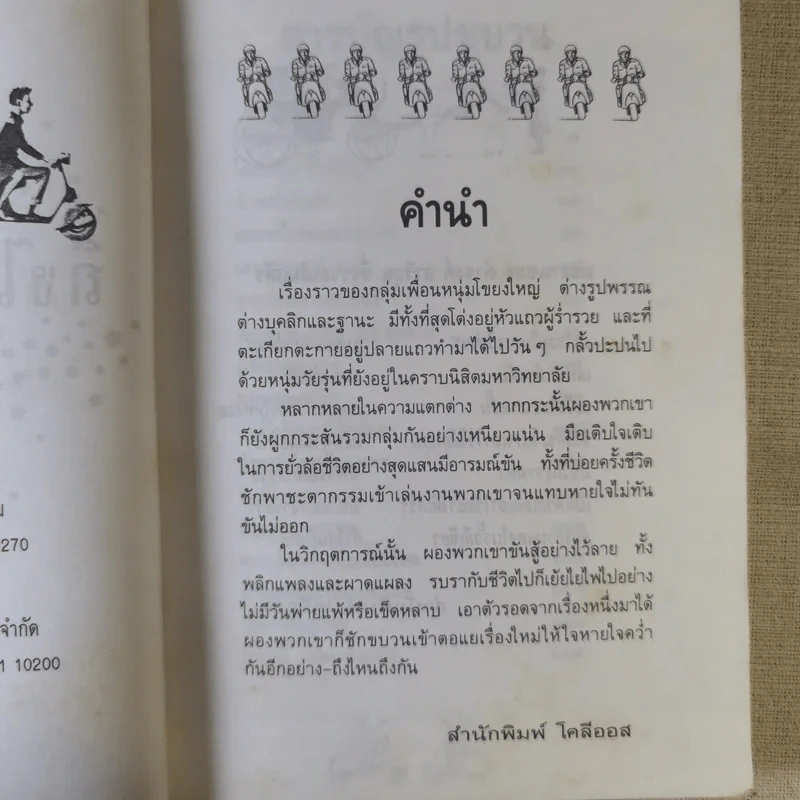 ม
0270
จำกัด
1 10200
คำนำ
เรื่องราวของกลุ่มเพื่อนหนุ่มโขยงใหญ่ ต่างรูปพรรณ
ต่างบุคลิกและฐานะ มีทั้งที่สุดโต่งอยู่หัวแถวผู้ร่ำรวย และที่
ตะเกียกตะกายอยู่ปลายแถวทำมาได้ไปวัน ๆ กลั้วปะปนไป
ด้วยหนุ่มวัยรุ่นที่ยังอยู่ในคราบนิสิตมหาวิทยาลัย
หลากหลายในความแตกต่าง หากกระนั้นผองพวกเขา
ก็ยังผูกกระสันรวมกลุ่มกันอย่างเหนียวแน่น มือเติบใจเติบ
ในการยั่วล้อชีวิตอย่างสุดแสนมีอารมณ์ขัน ทั้งที่บ่อยครั้งชีวิต
ชักพาชะตากรรมเข้าเล่นงานพวกเขาจนแทบหายใจไม่ทัน
ขันไม่ออก
ในวิกฤตการณ์นั้น ผองพวกเขาขันสู้อย่างไว้ลาย ทั้ง
พลิกแพลงและผาดแผลง รบรากับชีวิตไปก็เย้ยไยไพไปอย่าง
ไม่มีวันพ่ายแพ้หรือเข็ดหลาบ เอาตัวรอดจากเรื่องหนึ่งมาได้
ผองพวกเขาก็ชักขบวนเข้าตอแยเรื่องใหม่ให้ใจหายใจคว่ำ
กันอีกอย่าง-ถึงไหนถึงกัน
สำนักพิมพ์ โคลีออส